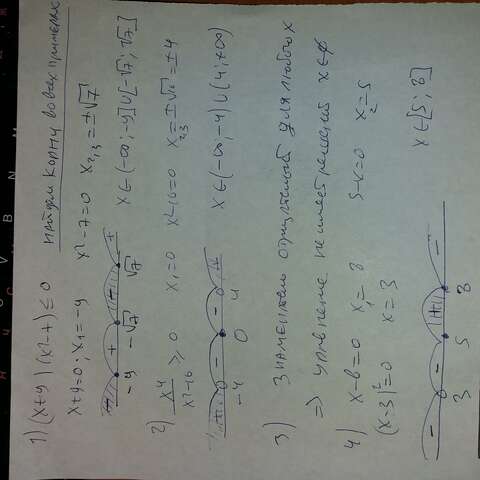 найдем корни во всех примерах
1) (x+9)(x²-7) ≤ 0
x+9=0; x₁=-9 x²-7=0 x₂,₃=±√7
- + - +
-9 -√7 √7
x∈(-∞;-9]∪[-√7;√7]
2) x⁴/(x²-16) ≥ 0 x₁=0 x²-16=0 x₂,₃=±√16=±4
+ - - +
-4 0 4
x∈(-∞;-4)∪(4;+∞)
3) Знаменатель отрицательный для любого x
=> уравнение не имеет решений x∈∅
4) x-8=0 x₁=8 5-x=0 x₂=5
(x-3)²=0 x=3
- - + -
3 5 8
x∈[5;8]